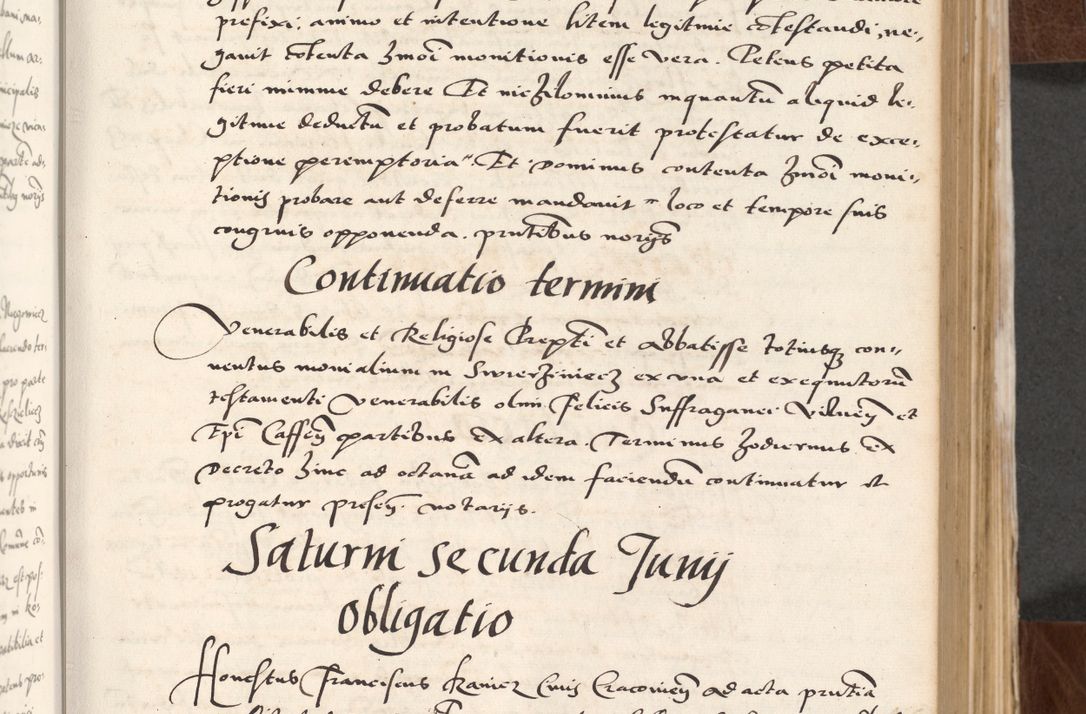 prefixi. animo et intentione litem legitime cōtestandi, ne-
gavit cōtenta hmōi monitionis esse vera. Petens petita
fieri minime debere Et nichilominus inquantū aliquid le-
gitime deductū et probatum fuerit protestatur de exce-
ptione peremptoria Et Dominus contenta hmōi moni-
tionis probare aut deferre mandavit loco et tempore suis
congruis opponenda. pñtibus norijs
Continuatio termini
Venerabilis et Religiose Prepti et Abbatisse totiusq con-
ventus monialium in Swierziniecz ex una et exequutorū
testamenti venerabilis olim Felicis Suffraganei Vilneñ et
Epi Caffeñ partibus ex altera. Terminus hodiernus ex
Decreto hinc ad octavā ad idem faciendū continuatur et
progatur preseñ. notarijs.
Saturni secunda Junij
Obligatio
Honestus Franciscus Kanier Civis Cracovieñ ad acta pñtia